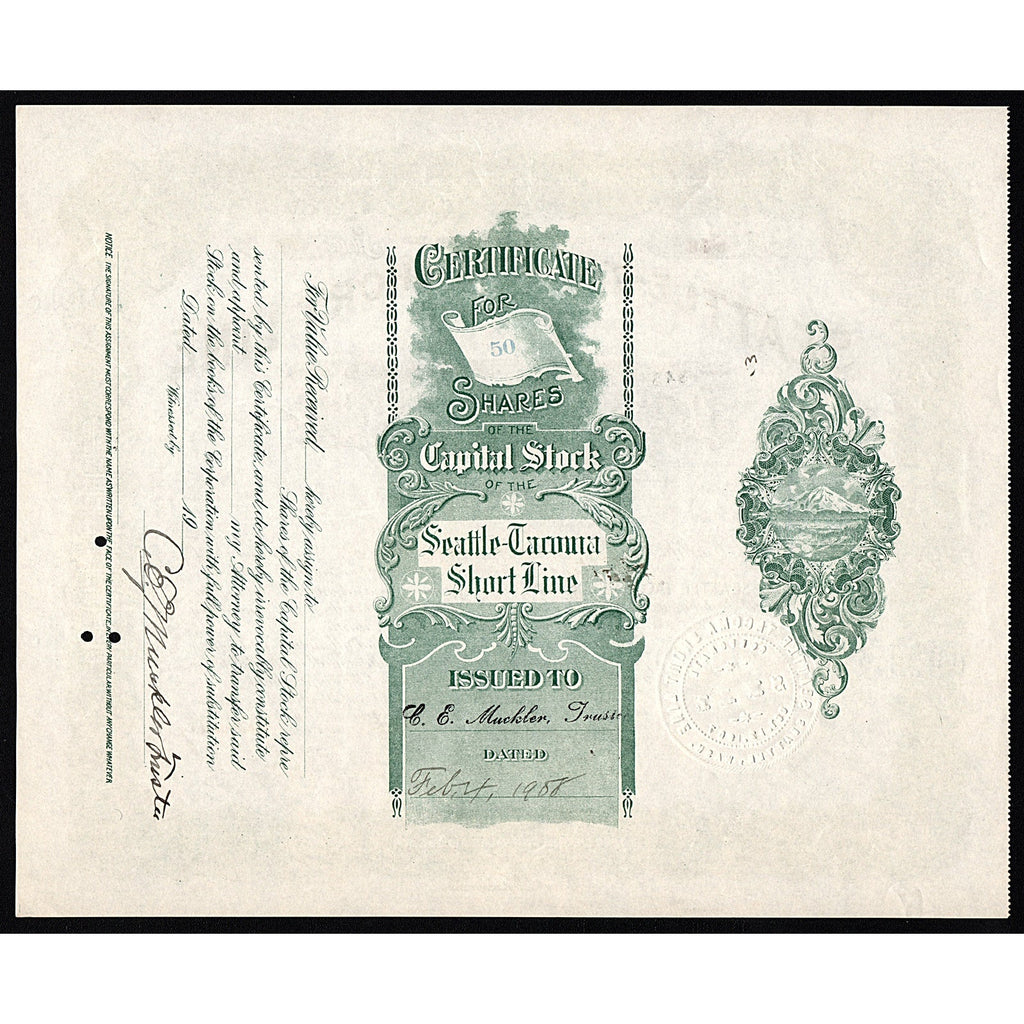 CERTIFICATE
FOR
50
SHARES
OF THE
Capital Stock
OF THE
Seattle-Tacoma
Short Line
ISSUED TO
C. E. Muckler, Truste
DATED
Feb. 4, 1908
For Value Received, hereby assign to
Shares of the Capital Stock repre
sented by this Certificate, and do hereby irrevocably constitute
and appoint my Attorney to transfer said
Stock on the books of the Corporation with full power of substitution
Dated 19
Witnessed by
C E Muckler Trustee
NOTICE. THE SIGNATURE OF THIS ASSIGNMENT MUST CORRESPOND WITH THE NAME AS WRITTEN UPON THE FACE OF THE CERTIFICATE, IN EVERY PARTICULAR, WITHOUT ANY CHANGE WHATEVER.